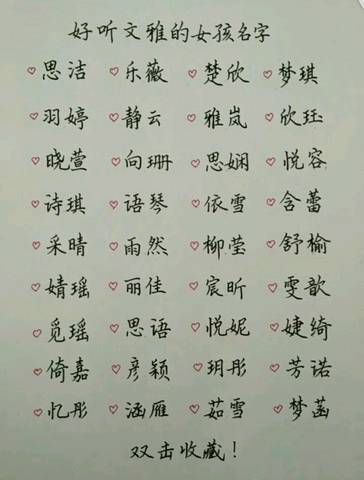 好听文雅的女孩名字
♡思洁 ♡乐薇 ♡楚欣 ♡梦琪
♡羽婷 ♡静云 ♡雅岚 ♡欣珏
♡晓萱 ♡向珊 ♡思娴 ♡悦容
♡诗琪 ♡语琴 ♡依雪 ♡含蕾
♡采晴 ♡雨然 ♡柳莹 ♡舒榆
♡婧瑶 ♡丽佳 ♡宸昕 ♡雯歆
♡觅瑶 ♡思语 ♡悦妮 ♡婕绮
♡倚嘉 ♡彦颖 ♡玥彤 ♡芳诺
♡忆彤 ♡涵雁 ♡茹雪 ♡梦菡
双击收藏！